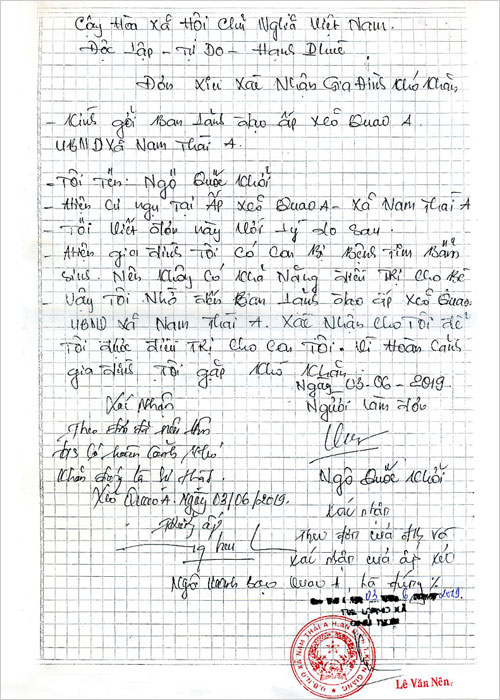 Cộng Hòa Xã Hội Chủ Nghĩa Việt Nam.
Độc Lập - Tự Do - Hạnh Phúc
Đơn Xin Xác Nhận Gia Đình Khó Khăn
- Kính gởi Ban Lãnh đạo ấp Xẻo Quao A.
UBND Xã Nam Thái A.
- Tôi Tên: Ngô Quốc Khởi
- Hiện Cư ngụ Tại Ấp Xẻo Quao A - Xã Nam Thái A
- Tôi Viết đơn này Với Lý do sau.
- Hiện gia đình Tôi Có Con Bị Bệnh Tim Bẩm
Sinh. Nên Không Có Khả Năng điều Trị Cho Bé
- Vậy Tôi Nhờ đến Ban Lãnh đạo ấp Xẻo Quao
UBND Xã Nam Thái A. Xác Nhận Cho Tôi để
Tôi được điều Trị Cho Con Tôi. Vì Hoàn Cảnh
gia đình Tôi gặp Khó Khăn
Ngày 03-06-2019.
Xác Nhận
Người Làm đơn
Theo
Có hoàn cảnh Khó
Khăn đúng là Sự Thật.
Ngô Quốc Khởi
Xẻo Quao A. Ngày 03/06/2019.
Xác nhận
Trưởng ấp
Theo đơn của
xác nhận của ấp Xẻo
Quao A, là đúng ./.
Ngô
03 6 2019.
U.B.N.D XÃ NAM THÁI A H. AN BIÊN T. KIÊN GIANG
Lê Văn Nên